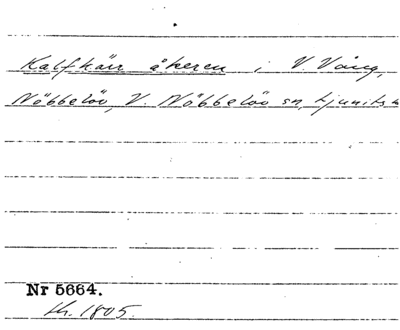 Kalfkärr åkeren i V. Vång,
Nöbbelöv, V. Nöbbelöv sn, Ljunits h
Nr 5664.
th. 1805.